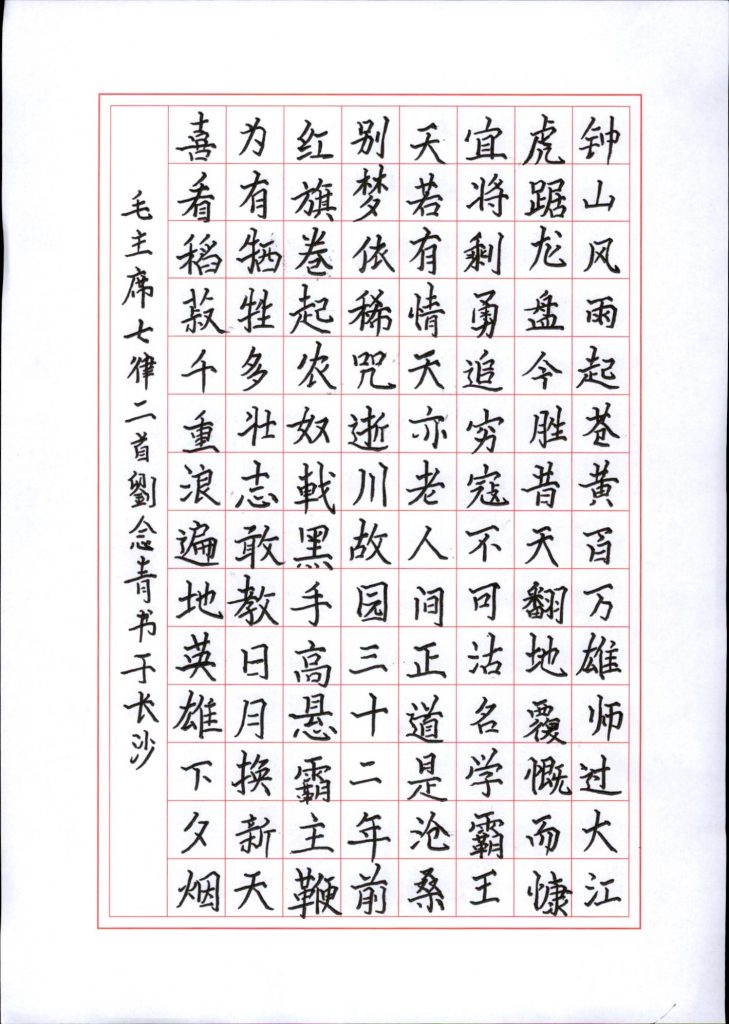 钟山风雨起苍黄百万雄师过大江
虎踞龙盘今胜昔天翻地覆慨而慷
宜将剩勇追穷寇不可沽名学霸王
天若有情天亦老人间正道是沧桑
别梦依稀咒逝川故园三十二年前
红旗卷起农奴戟黑手高悬霸主鞭
为有牺牲多壮志敢教日月换新天
喜看稻菽千重浪遍地英雄下夕烟
毛主席七律二首劉念青书于长沙